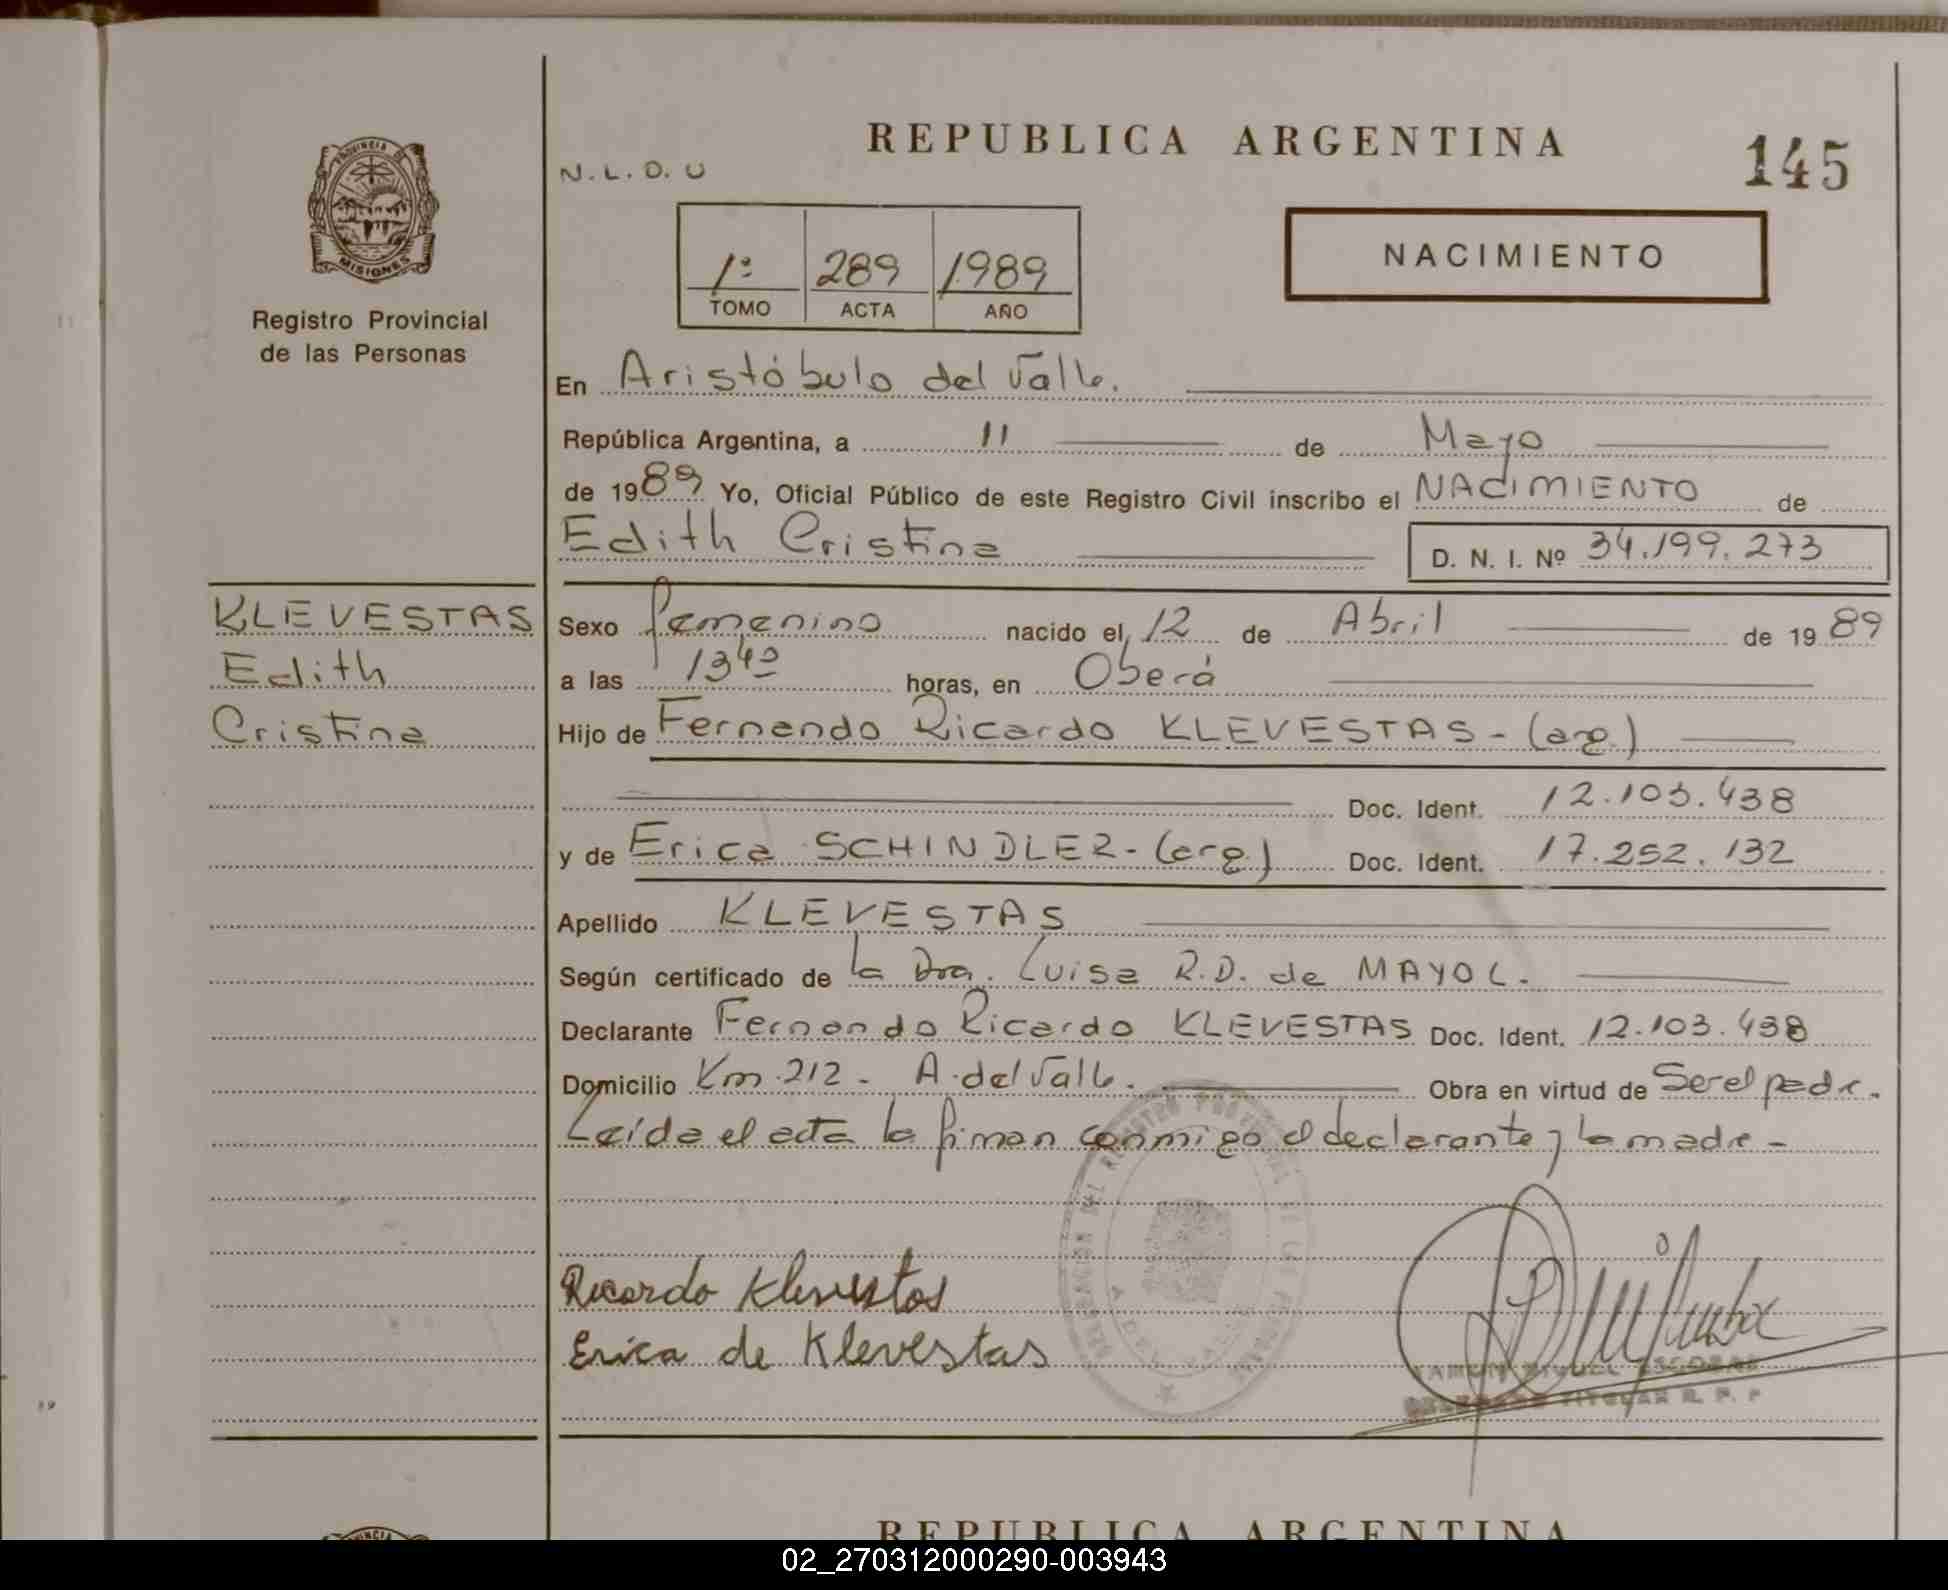 REPUBLICA ARGENTINA
145
N.L.D.U
PROVINCIA DE
MISIONES
Registro Provincial
de las Personas
1º 289 1989
TOMO ACTA AÑO
NACIMIENTO
En Aristóbulo del Valle.
República Argentina, a 11 de Mayo
de 1989 Yo, Oficial Público de este Registro Civil inscribo el NACIMIENTO de
Edith Cristina
D. N. I. Nº 34.199.273
KLEVESTAS
Edith
Cristina
Sexo femenino nacido el 12 de Abril de 1989
a las 13⁴⁰ horas, en Oberá
Hijo de Fernando Ricardo KLEVESTAS - (arg.)
Doc. Ident. 12.103.438
y de Erica SCHINDLER - (arg.) Doc. Ident. 17.252.132
Apellido KLEVESTAS
Según certificado de la Dra. Luisa R.D. de MAYOL.
Declarante Fernando Ricardo KLEVESTAS Doc. Ident. 12.103.438
Domicilio Km. 212 - A. del Valle. Obra en virtud de Ser el padre.
Leída el acta la firman conmigo el declarante y la madre -
Ricardo Klevestas
Erica de Klevestas
MIGUEL ESCOBAR
TITULAR R. P. P
REPUBLICA ARGENTINA
02_270312000290-003943